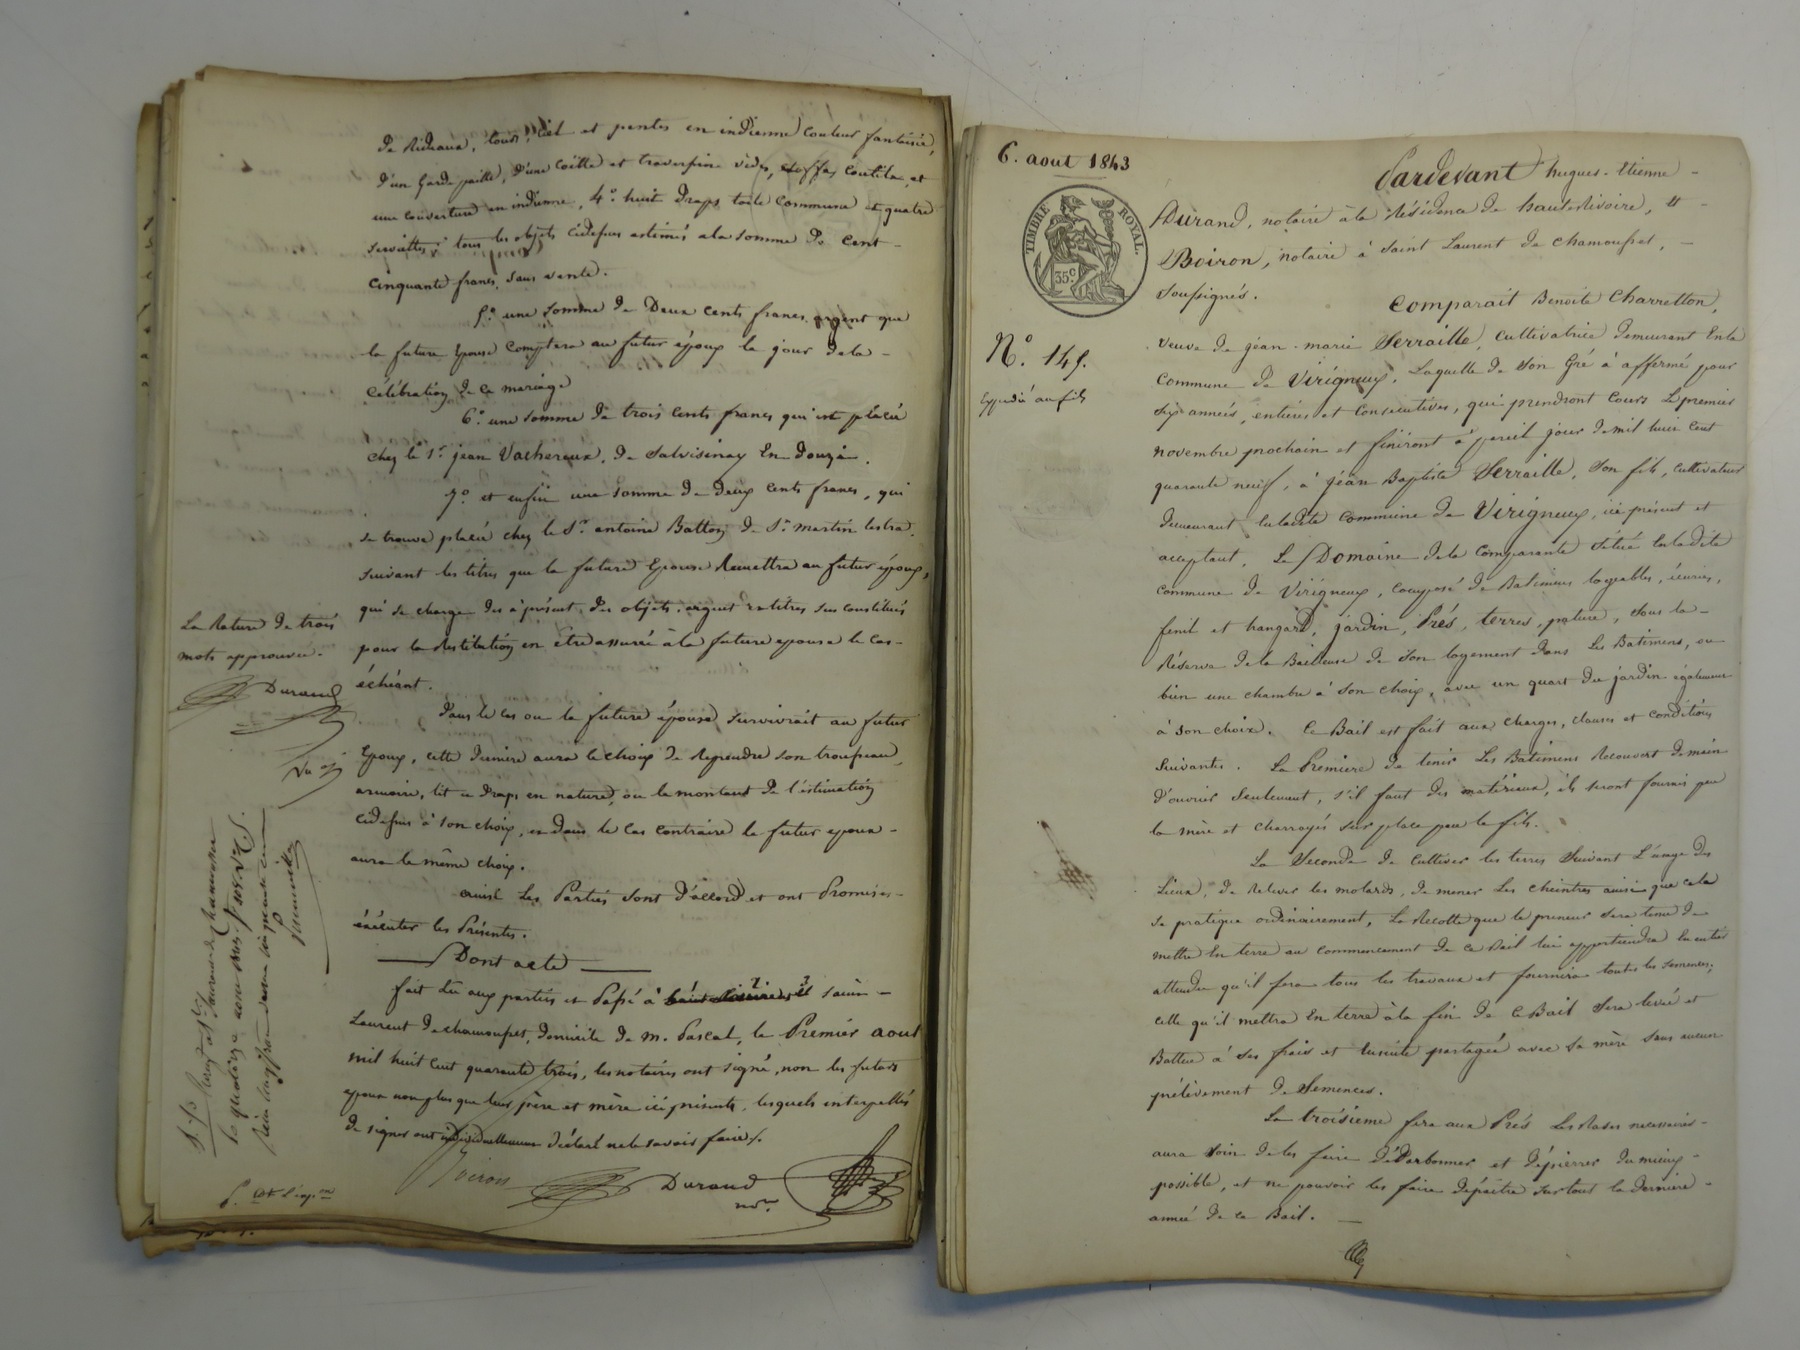 de Rideaux, tour, ciel et pentes en indienne couleur fantaisie,
d'une garde paille, d'une coëtte et traversine vides, étoffes coutila, et
une couverture en indienne, 4.° huit draps toile commune et quatre
serviettes; tous les objets cidessus estimés a la somme de cent
cinquante francs, sans vente.
5.° une somme de Deux cents francs argent que
la future épouse comptera au futur époux le jour de la
célébration de ce mariage
6.° une somme de trois cents francs qui est placée
chez le S.r jean Vachereux, de Salvisinay En Donzÿ.
7.° et enfin une somme de deux cents francs, qui
se trouve placée chez le S.r antoine Batton de S.t martin lestra
suivant les titres que la future Epouse Remettra au futur époux,
qui se charge des à présent des objets, argent et titres sus constitués
pour la Restitution en être assurée à la future epouse le cas
échéant.
La Rature de trois
mots approuvée.
Durand
Dans le cas ou la future épouse survivrait au futur
Epoux, cette dernière aura le choix de Reprendre son trousseau,
armoire, lit et draps en nature, ou le montant de l'éstimation
cidessus à son choix, et dans le cas contraire le futur epoux
aura le même choix.
ainsi Les Parties sont d'accord et ont Promis
éxécuter les Présentes.
Dont acte
fait Lu aux parties et Passé à saint
Laurent de chamousset, domicile de m. Pascal, le Premier aout
mil huit cent quarante trois, les notaires ont signé, non les futurs
epoux non plus que leurs père et mère ici présents, lesquels interpellés
de signer ont individuellement déclaré ne le savoir faire.
Boiron
Durand
no.re
6. aout 1843
TIMBRE ROYAL.
35c
N.° 145.
Expédié au fils
Pardevant hugues-Etienne
Durand, notaire à la Résidence de hauterivoire, et
Boiron, notaire à Saint Laurent de Chamousset,
soussignés.
Comparait Benoite Charretton,
veuve de jean-marie Serraille, cultivatrice demeurant En la
commune de Virigneux, Laquelle de son Gré à affermé pour
six années, entières et Consecutives, qui prendront cours Le premier
novembre prochain et finiront à pareil jour de mil huit cent
quarante neuf, à jean Baptiste Serraille, son fils, cultivateur
demeurant En ladite commune de Virigneux, ici présent et
acceptant, Le Domaine de la comparante situé En ladite
commune de Virigneux, composé de Batimens logeables, écuries,
fenil et hangard, jardin, Prés, terres, pature, sous la
Réserve de la Bailleuse de son logement dans Les Batimens, ou
bien une chambre à son choix, avec un quart du jardin également
à son choix. Ce Bail est fait aux charges, clauses et conditions
Suivantes. La Premiere de tenir Les Batimens Recouvert de main
d'ouvrier seulement, s'il faut des matériaux, ils seront fournis par
la mère et charroyés sur place par le fils.
La Seconde de Cultiver les terres Suivant L'usage des
Lieux, de Relever les molards, de mener Les cheintres ainsi que cela
se pratique ordinairement, La Recolte que le preneur sera tenu de
mettre En terre au commencement de ce Bail lui appartiendra En entier
attendu qu'il fera tous les travaux et fournira toutes les semences;
celle qu'il mettra En terre à la fin de ce Bail sera levée et
Battue à ses frais et Ensuite partagée avec sa mère sans aucun
prélèvement de Semences.
La troisieme fera aux Prés Les Rases necessaires
aura soin de les faire déDarbonner et dépierrer du mieux
possible, et ne pouvoir les faire dépaitre surtout la dernière
année de ce Bail.